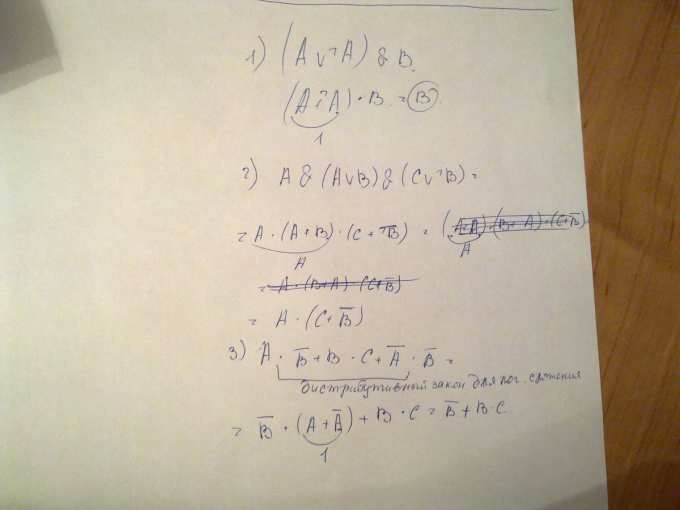 1) (A∨¬A) & B.
(A+Ā)·B = B
1
2) A & (A∨B) & (C∨¬B) =
= A·(A+B)·(C+B̅) = (A·A)·(B+A)·(C+B̅)
A A
= A·(B+A)·(C+B̅)
= A·(C+B̅)
3) A·B̅+B·C+A̅·B̅ =
дистрибутивный закон для лог. сложения
= B̅·(A+A̅)+B·C = B̅+B·C
1